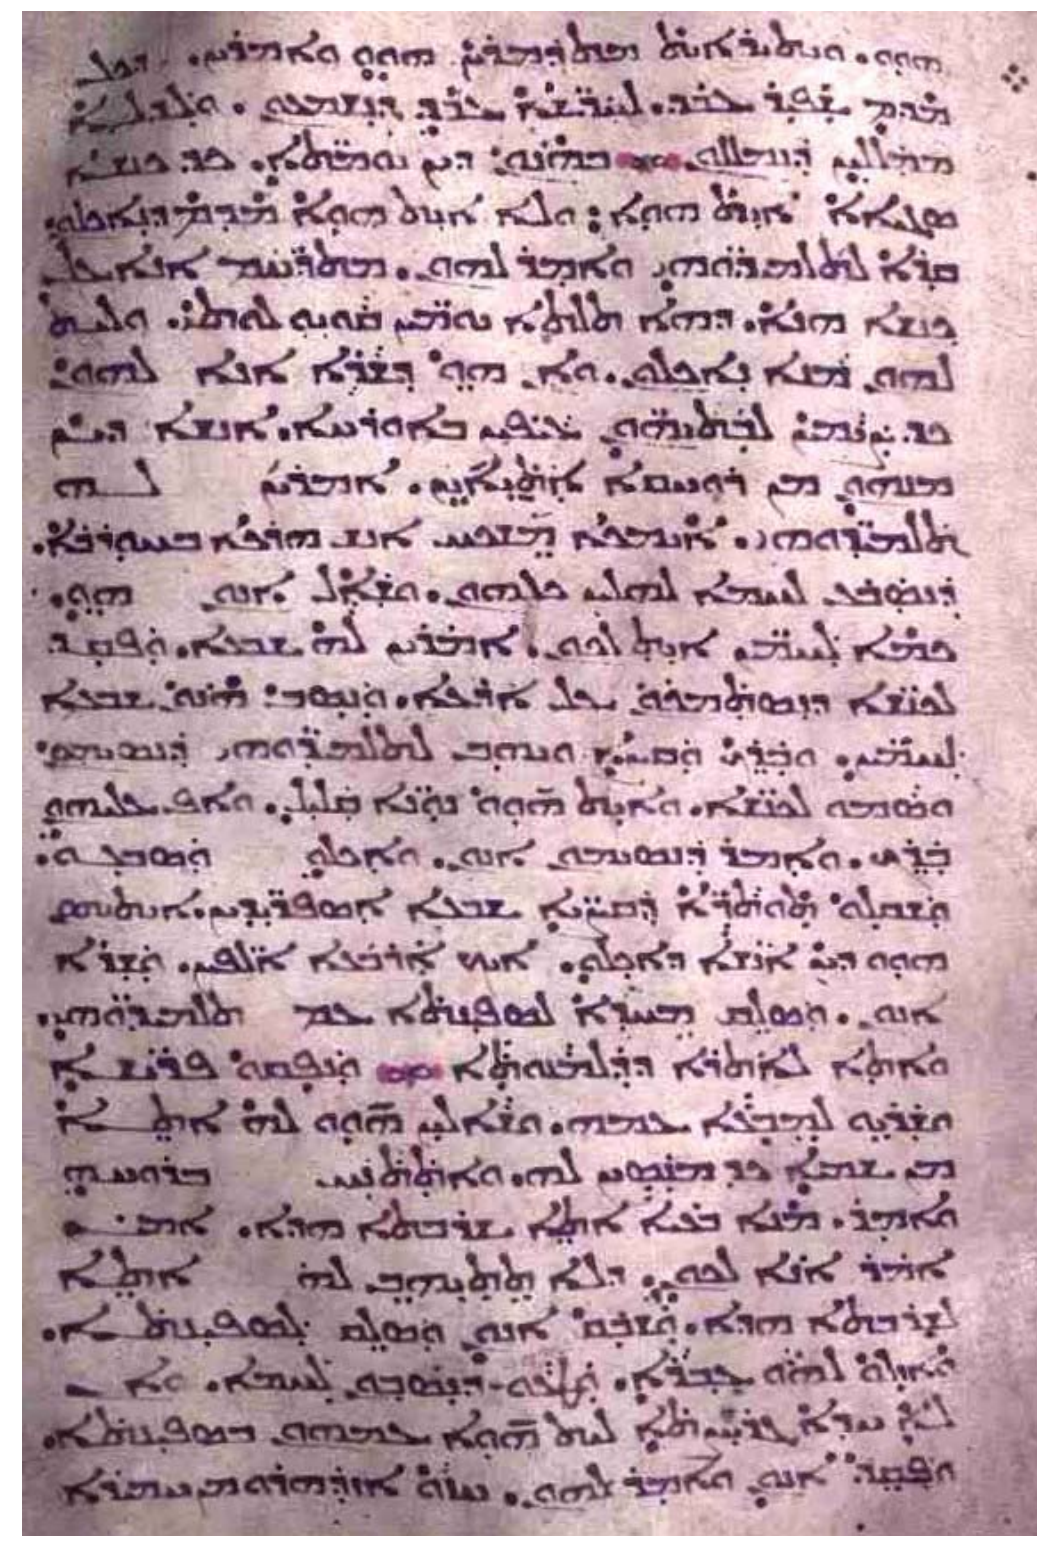 ܗܘܘ. ܘܝܬܝܪܐܝܬ ܡܬܕܡܪܝܢ ܗܘܘ ܘܐܡܪܝܢ. ܕܟܠ
ܡܕܡ ܫܦܝܪ ܥܒܕ. ܠܚܪܫܐ ܥܒܕ ܕܢܫܡܥܘܢ. ܘܕܠܐ
ܡܡܠܠܝܢ ܕܢܡܠܠܘܢ. ܒܗܢܘܢ ܕܝܢ ܝܘܡܬܐ. ܟܕ ܟܢܫܐ
ܣܓܝܐܐ ܐܝܬ ܗܘܐ: ܘܠܐ ܐܝܬ ܗܘܐ ܡܕܡ ܕܢܐܟܠܘܢ.
ܩܪܐ ܠܬܠܡܝܕܘܗܝ ܘܐܡܪ ܠܗܘܢ. ܡܬܪܚܡ ܐܢܐ ܥܠ
ܟܢܫܐ ܗܢܐ. ܕܗܐ ܬܠܬܐ ܝܘܡܝܢ ܩܘܝܘ ܠܘܬܝ. ܘܠܝܬ
ܠܗܘܢ ܡܢܐ ܢܐܟܠܘܢ. ܘܐܢ ܗܘ ܕܫܪܐ ܐܢܐ ܠܗܘܢ
ܟܕ ܨܝܡܝܢ ܠܒܬܝܗܘܢ ܥܝܦܝܢ ܒܐܘܪܚܐ. ܐܢܫܐ ܕܝܢ
ܡܢܗܘܢ ܡܢ ܪܘܚܩܐ ܐܬܝܐܝܢ. ܐܡܪܝܢ ܠܗ
ܬܠܡܝܕܘܗܝ. ܐܝܡܟܐ ܡܫܟܚ ܐܢܫ ܗܪܟܐ ܒܚܘܪܒܐ.
ܕܢܣܒܥ ܠܚܡܐ ܠܗܠܝܢ ܟܠܗܘܢ. ܘܫܐܠ ܐܢܘܢ ܗܘ.
ܟܡܐ ܠܚܡܝܢ ܐܝܬ ܠܟܘܢ. ܐܡܪܝܢ ܠܗ ܫܒܥܐ. ܘܦܩܕ
ܠܟܢܫܐ ܕܢܣܬܡܟܘܢ ܥܠ ܐܪܥܐ. ܘܢܣܒ ܗܢܘܢ ܫܒܥܐ
ܠܚܡܝܢ. ܘܒܪܟ ܘܩܨܐ ܘܝܗܒ ܠܬܠܡܝܕܘܗܝ ܕܢܣܝܡܘܢ.
ܘܣܡܘ ܠܟܢܫܐ. ܘܐܝܬ ܗܘܘ ܢܘܢܐ ܩܠܝܠ. ܘܐܦ ܥܠܝܗܘܢ
ܒܪܟ. ܘܐܡܪ ܕܢܣܝܡܘܢ ܐܢܘܢ. ܘܐܟܠܘ ܘܣܒܥܘ.
ܘܫܩܠܘ ܬܘܬܪܐ ܕܩܨܝܐ ܫܒܥܐ ܐܣܦܪܝܕܝܢ. ܐܝܬܝܗܘܢ
ܗܘܘ ܕܝܢ ܐܢܫܐ ܕܐܟܠܘ. ܐܝܟ ܐܪܒܥܐ ܐܠܦܝܢ. ܘܫܪܐ
ܐܢܘܢ. ܘܣܠܩ ܡܚܕܐ ܠܣܦܝܢܬܐ ܥܡ ܬܠܡܝܕܘܗܝ.
ܘܐܬܐ ܠܐܬܪܐ ܕܕܠܡܢܘܬܐ ܘܢܦܩܘ ܦܪܝܫܐ
ܘܫܪܝܘ ܠܡܒܥܐ ܥܡܗ. ܘܫܐܠܝܢ ܗܘܘ ܠܗ ܐܬܐ
ܡܢ ܫܡܝܐ ܟܕ ܡܢܣܝܢ ܠܗ. ܘܐܬܬܢܚ ܒܪܘܚܗ
ܘܐܡܪ. ܡܢܐ ܒܥܝܐ ܐܬܐ ܫܪܒܬܐ ܗܕܐ. ܐܡܝܢ
ܐܡܪ ܐܢܐ ܠܟܘܢ. ܕܠܐ ܬܬܝܗܒ ܠܗ ܐܬܐ
ܠܫܪܒܬܐ ܗܕܐ. ܘܫܒܩ ܐܢܘܢ ܘܣܠܩ ܠܣܦܝܢܬܐ.
ܘܐܙܠ ܠܗܘ ܥܒܪܐ. ܘܛܥܘ ܕܢܣܒܘܢ ܠܚܡܐ. ܘܐ
ܠܐ ܚܕܐ ܓܪܝܨܬܐ ܠܝܬ ܗܘܐ ܥܡܗܘܢ ܒܣܦܝܢܬܐ.
ܘܦܩܕ ܐܢܘܢ ܘܐܡܪ ܠܗܘܢ. ܚܙܘ ܐܙܕܗܪܘ ܡܢ ܚܡܝܪܐ